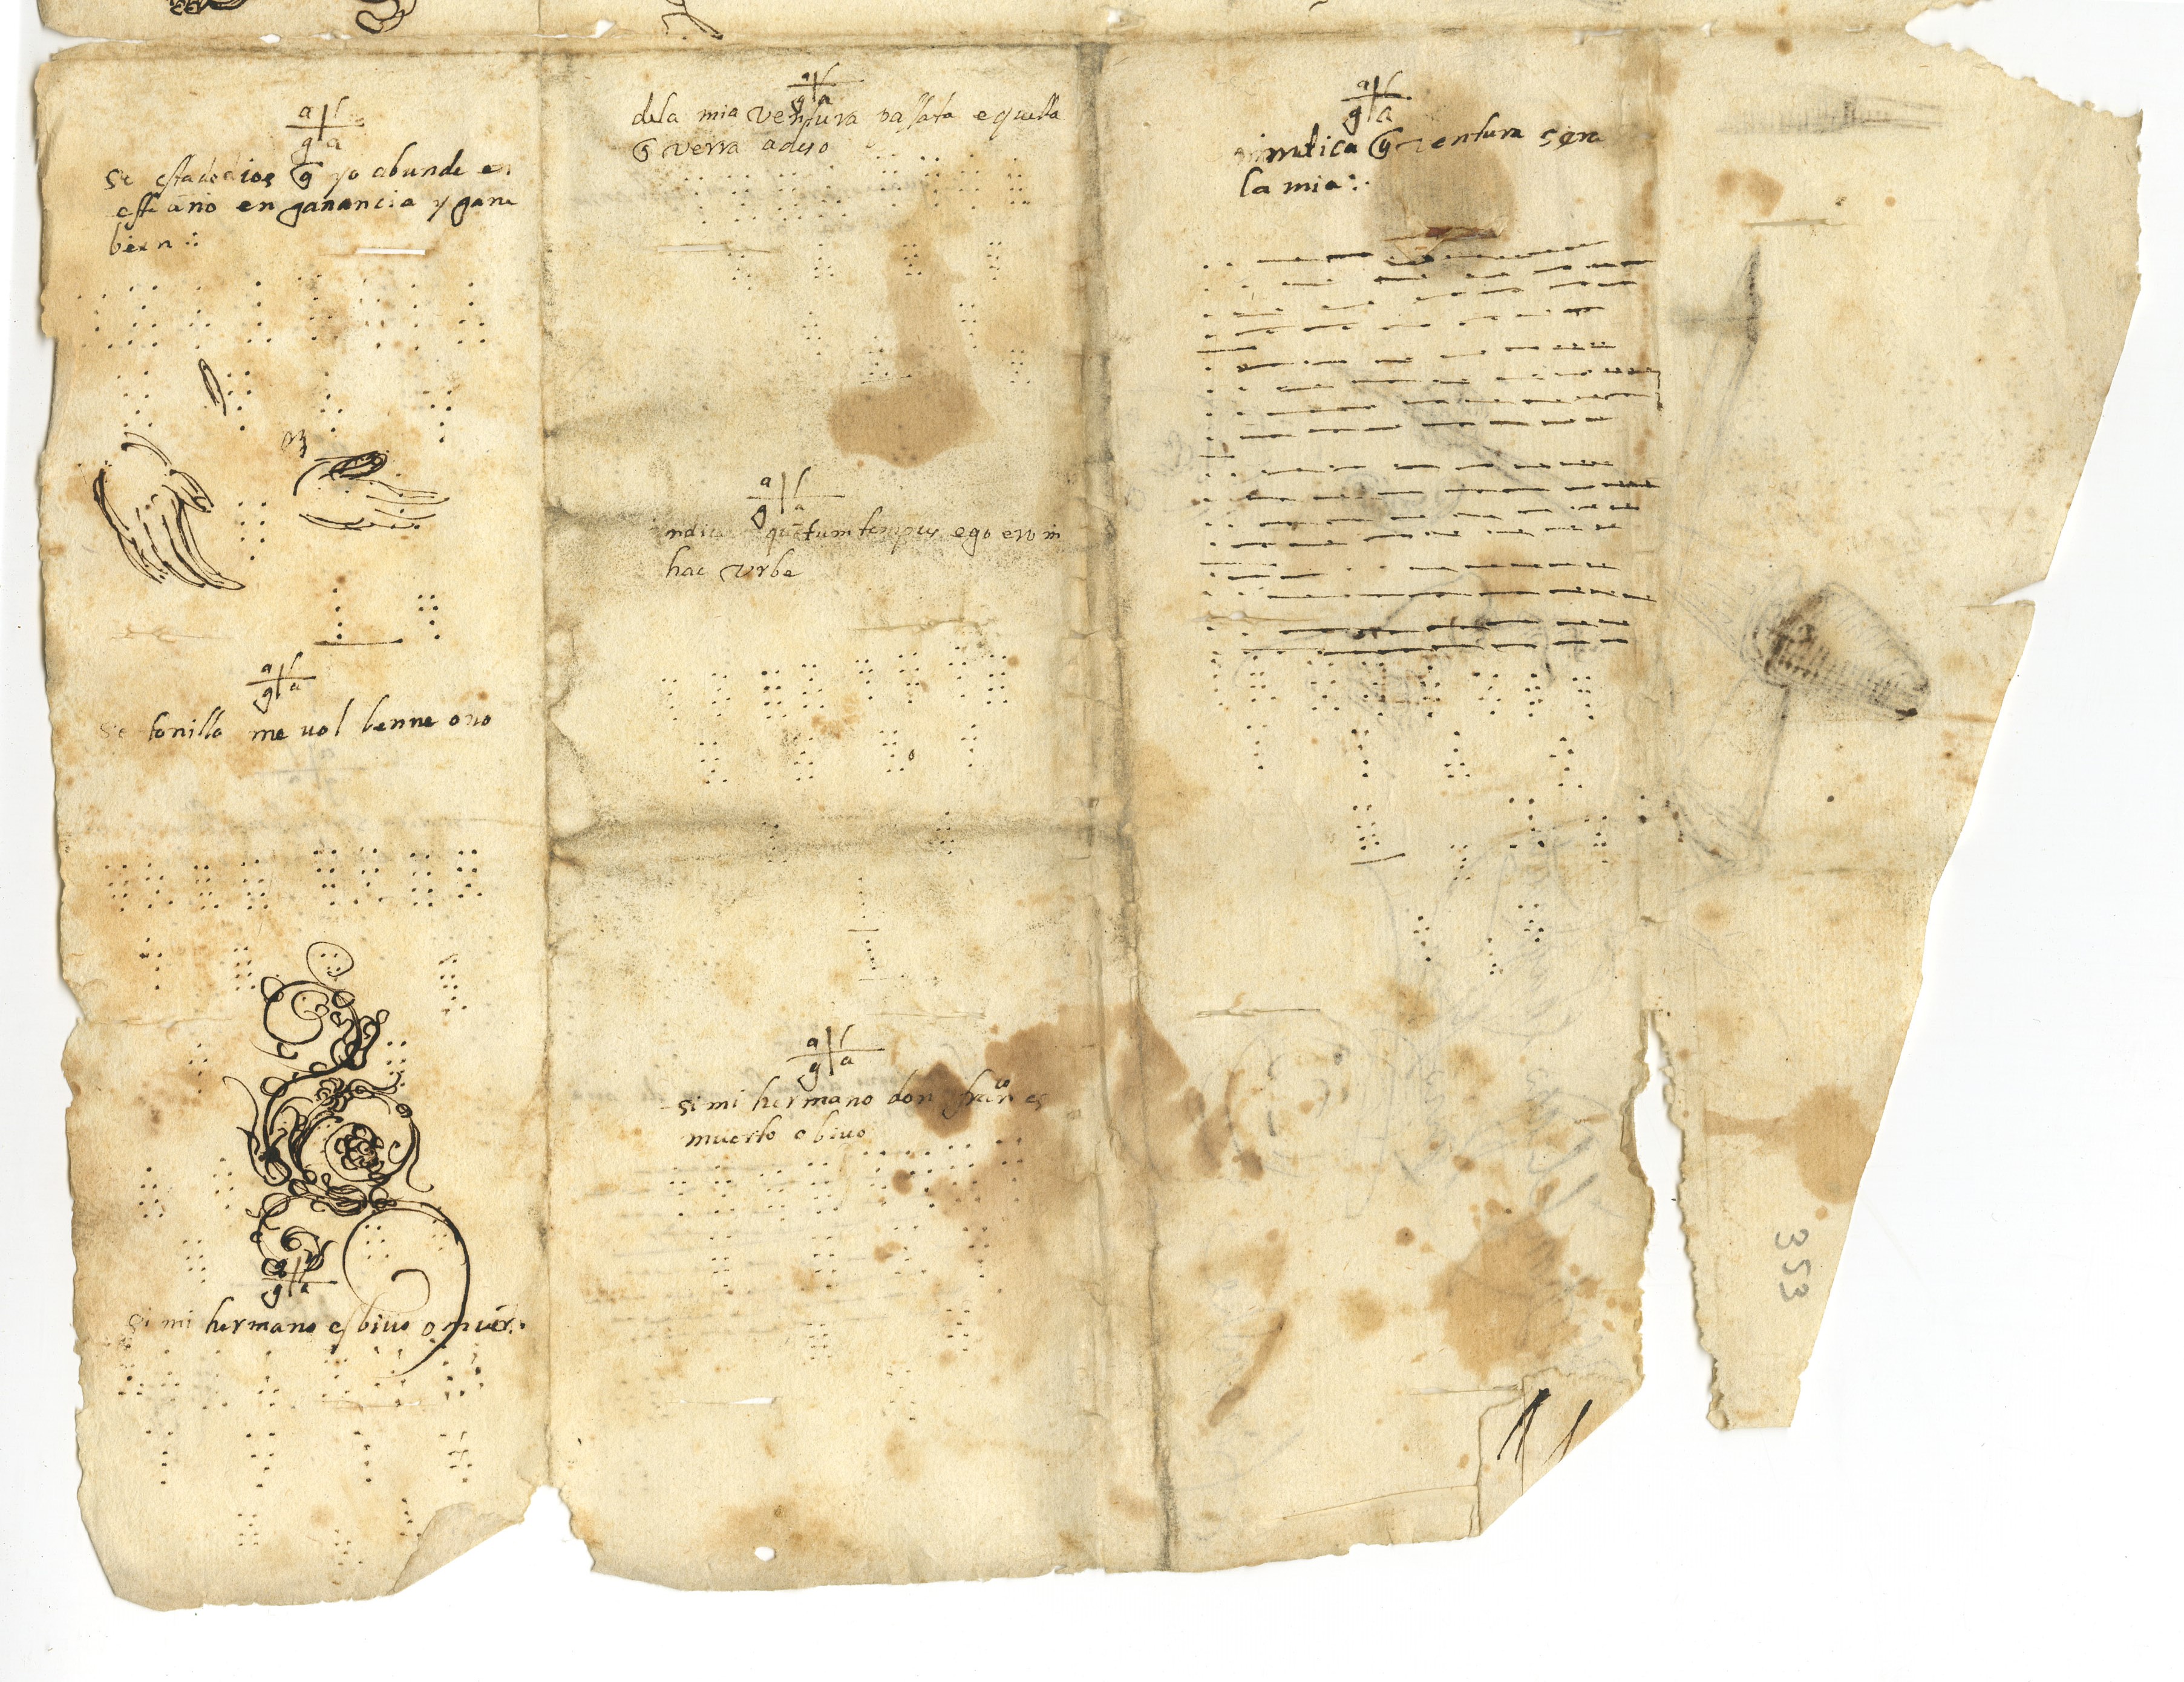 a l
g a
se esta de dios q̃ yo abunde en
este año en ganancia y gane
bien :
a l
g a
se tonilla me uol benne o no
a l
g a
si mi hermano es biuo o muert.
a l
g a
dela mia ventura passata e quella
q̃ verra adeso
a l
g a
indica quãtum tempus ego ero in
hac vrbe
a l
g a
si mi hermano don franco es
muerto o biuo
a l
g a
q̃ ventura sera
la mia :.
353